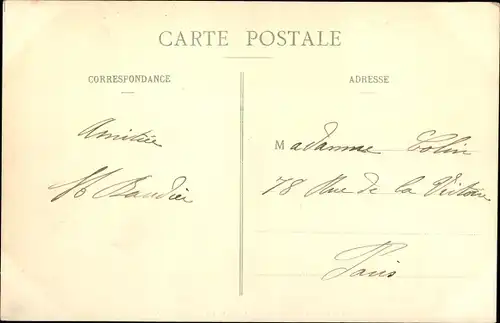 CARTE POSTALE
CORRESPONDANCE
ADRESSE
Amitiée
Baudier
Madame Colin
78 Rue de la Victoire
Paris